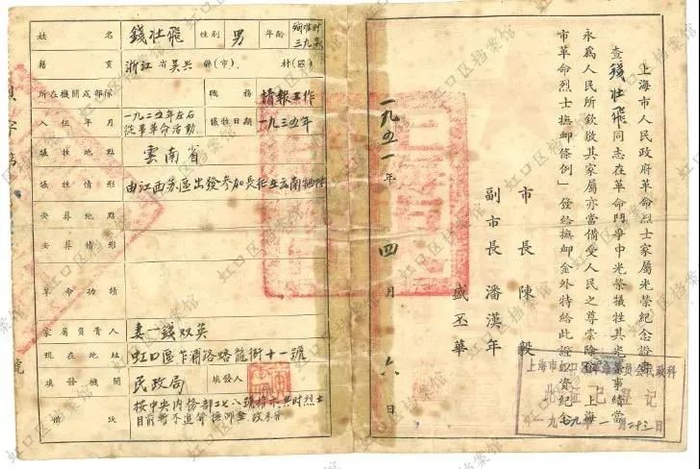 上海市人民政府革命烈士家屬光榮紀念證
查錢壯飛同志在革命鬥爭中光榮犧牲其光榮事績當
永為人民所欽敬其家屬亦當備受人民之尊崇除依上海
市革命烈士撫卹條例」發給撫卹金外特給此證以資紀念
市長陳毅
副市長潘漢年
盛丕華
一九五一年四月六日
上海市虹口區
已登記
一九 年一月二十三日
姓名 錢壯飛 性別 男 年齡 犧牲時三九歲
籍貫 浙江省吳興縣(市) 村(區)
所在機關或部隊 職務 情報工作
入伍年月 一九二五年左右從事革命活動 犧牲日期 一九三五年
犧牲地點 雲南省
犧牲情形 由江西苏區出發參加長征在云南牺牲
安葬地點
安葬情形
革命功績
家屬負責人 妻一錢双英
現在地址 虹口區乍浦路 街十一號
填發機關 民政局 填發人
備攷 按中央内務部 烈士
目前暫不追
字第
號
虹口区档案馆